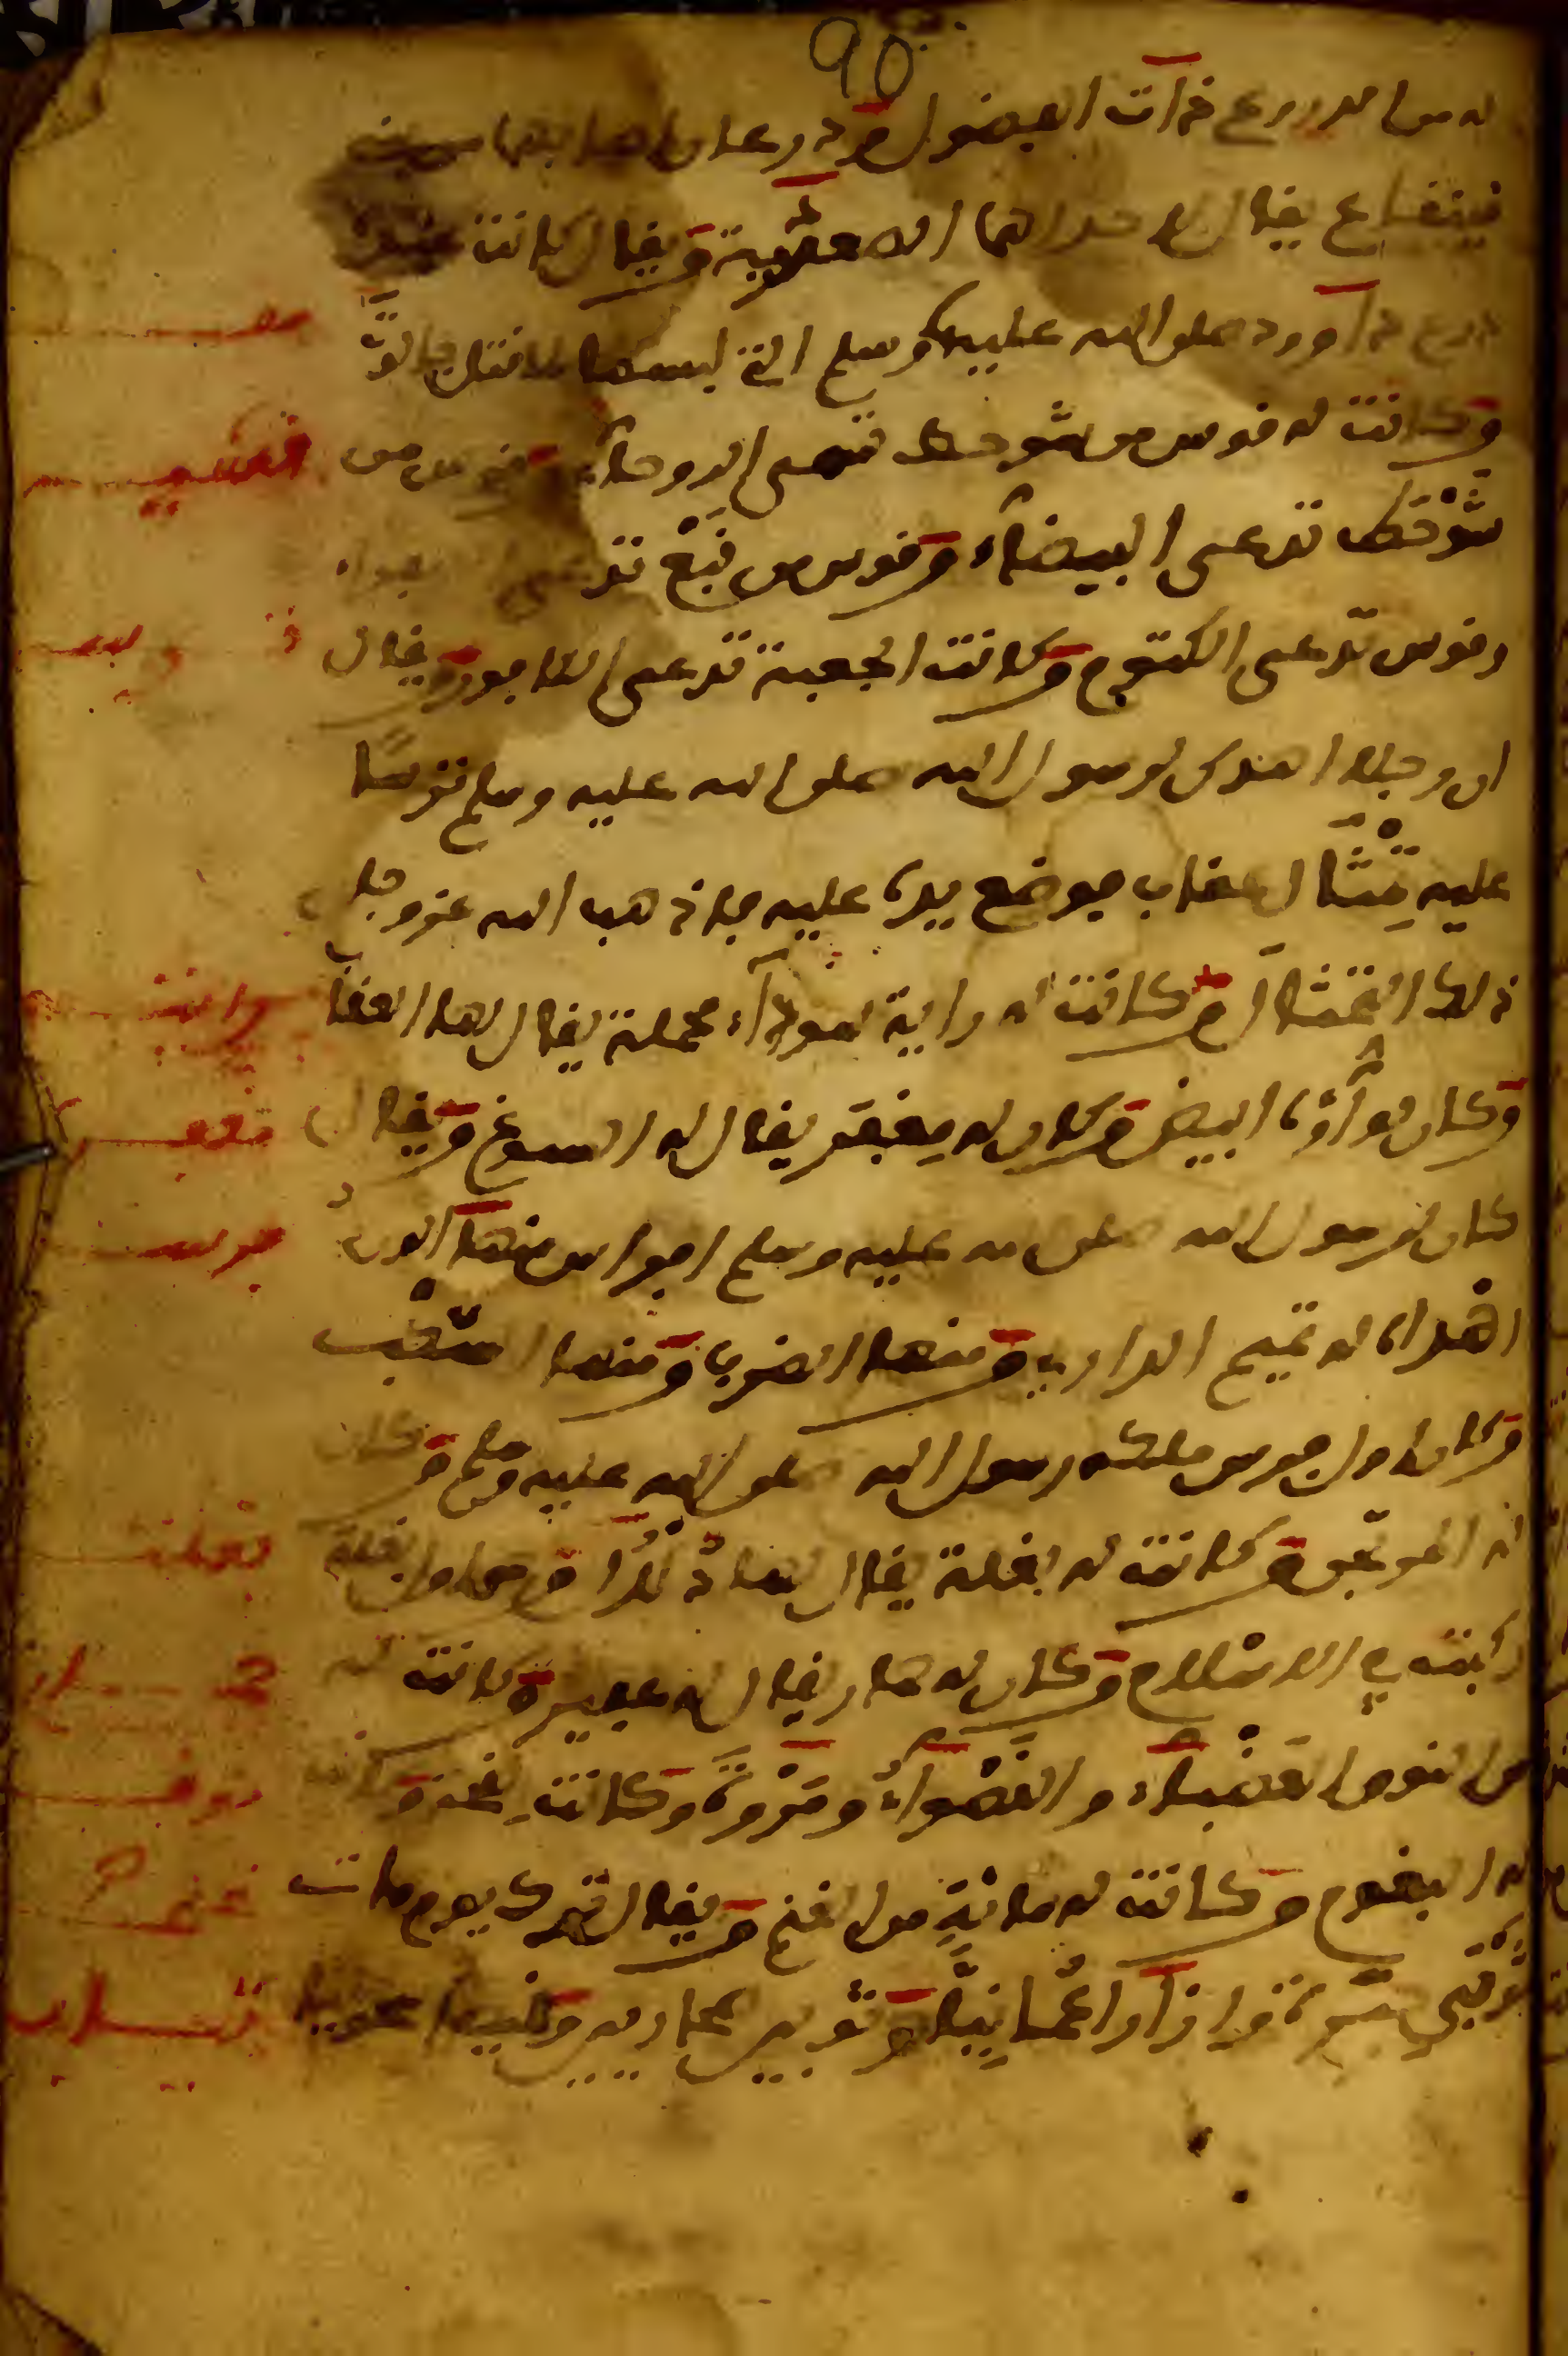 90
له من الدروع ذات الفضول ودرعان اصابهما من
قينقاع يقال لاحداهما السعدية ويقال كانت عنده
درع داوود صلى الله عليه وسلم التي لبسها لما قتل جالوت
وكانت له قوس من شوحط تسمى الروحاء وقوس من
شوحط تدعى البيضاء وقوس من نبع تدعى الصفراء
وقوس تدعى الكتوم وكانت الجعبة تدعى الكافور ويقال
ان رجلا اهدى لرسول الله صلى الله عليه وسلم ترسا
عليه تمثال عقاب فوضع يده عليه فاذهب الله عز وجل
ذلك التمثال وكانت له راية سوداء مخملة يقال لها العقاب
وكان لواؤه ابيض وكان له مغفر يقال له السبوغ ويقال
كان لرسول الله صلى الله عليه وسلم افراس منها الورد
اهداه له تميم الداري ومنها الضرب ومنها السكب
وكان اول فرس ملكه رسول الله صلى الله عليه وسلم وكان
له المرتجز وكانت له بغلة يقال لها دلدل وهي اول بغلة
ركبت في الاسلام وكان له حمار يقال له عفير وكانت له
من النوق العضباء والقصواء ومروة وكانت لقحة وكانت
له البغوم وكانت له مائة من الغنم ويقال ترك يوم مات
ثوبي حبرة وازارا عمانيا وثوبين صحاريين وقميصا صحاريا
قسي
راية
مغفر
فرس
بغلة
حمار
نوق
غنم
ثياب